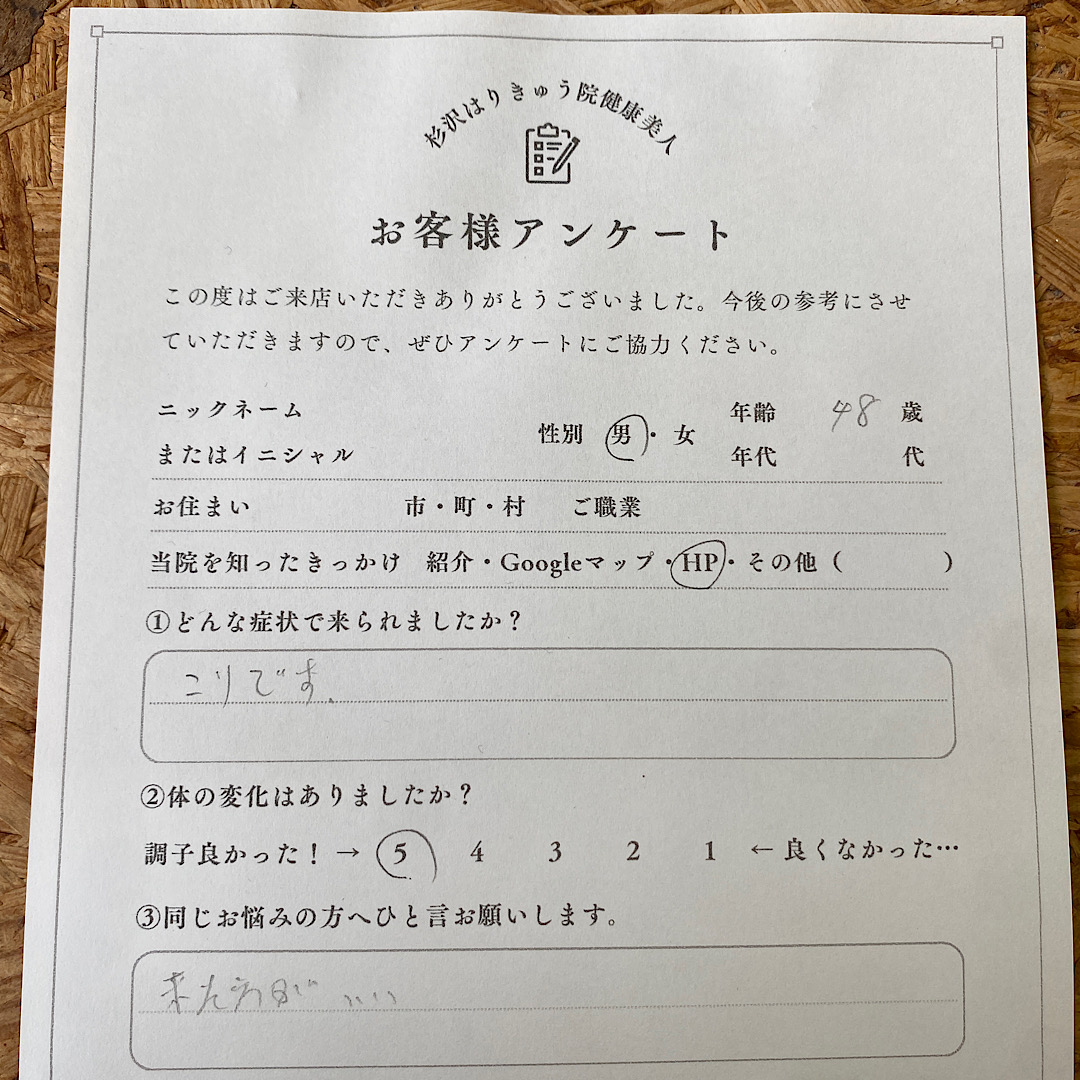 杉沢はりきゅう院健康美人
お客様アンケート
この度はご来店いただきありがとうございました。今後の参考にさせ
ていただきますので、ぜひアンケートにご協力ください。
ニックネーム
またはイニシャル
性別 男・女
年齢 48 歳
年代 代
お住まい 市・町・村 ご職業
当院を知ったきっかけ 紹介・Googleマップ・HP・その他( )
①どんな症状で来られましたか?
こりです.
②体の変化はありましたか?
調子良かった!→ 5 4 3 2 1 ←良くなかった…
③同じお悩みの方へひと言お願いします。
来た方が いい